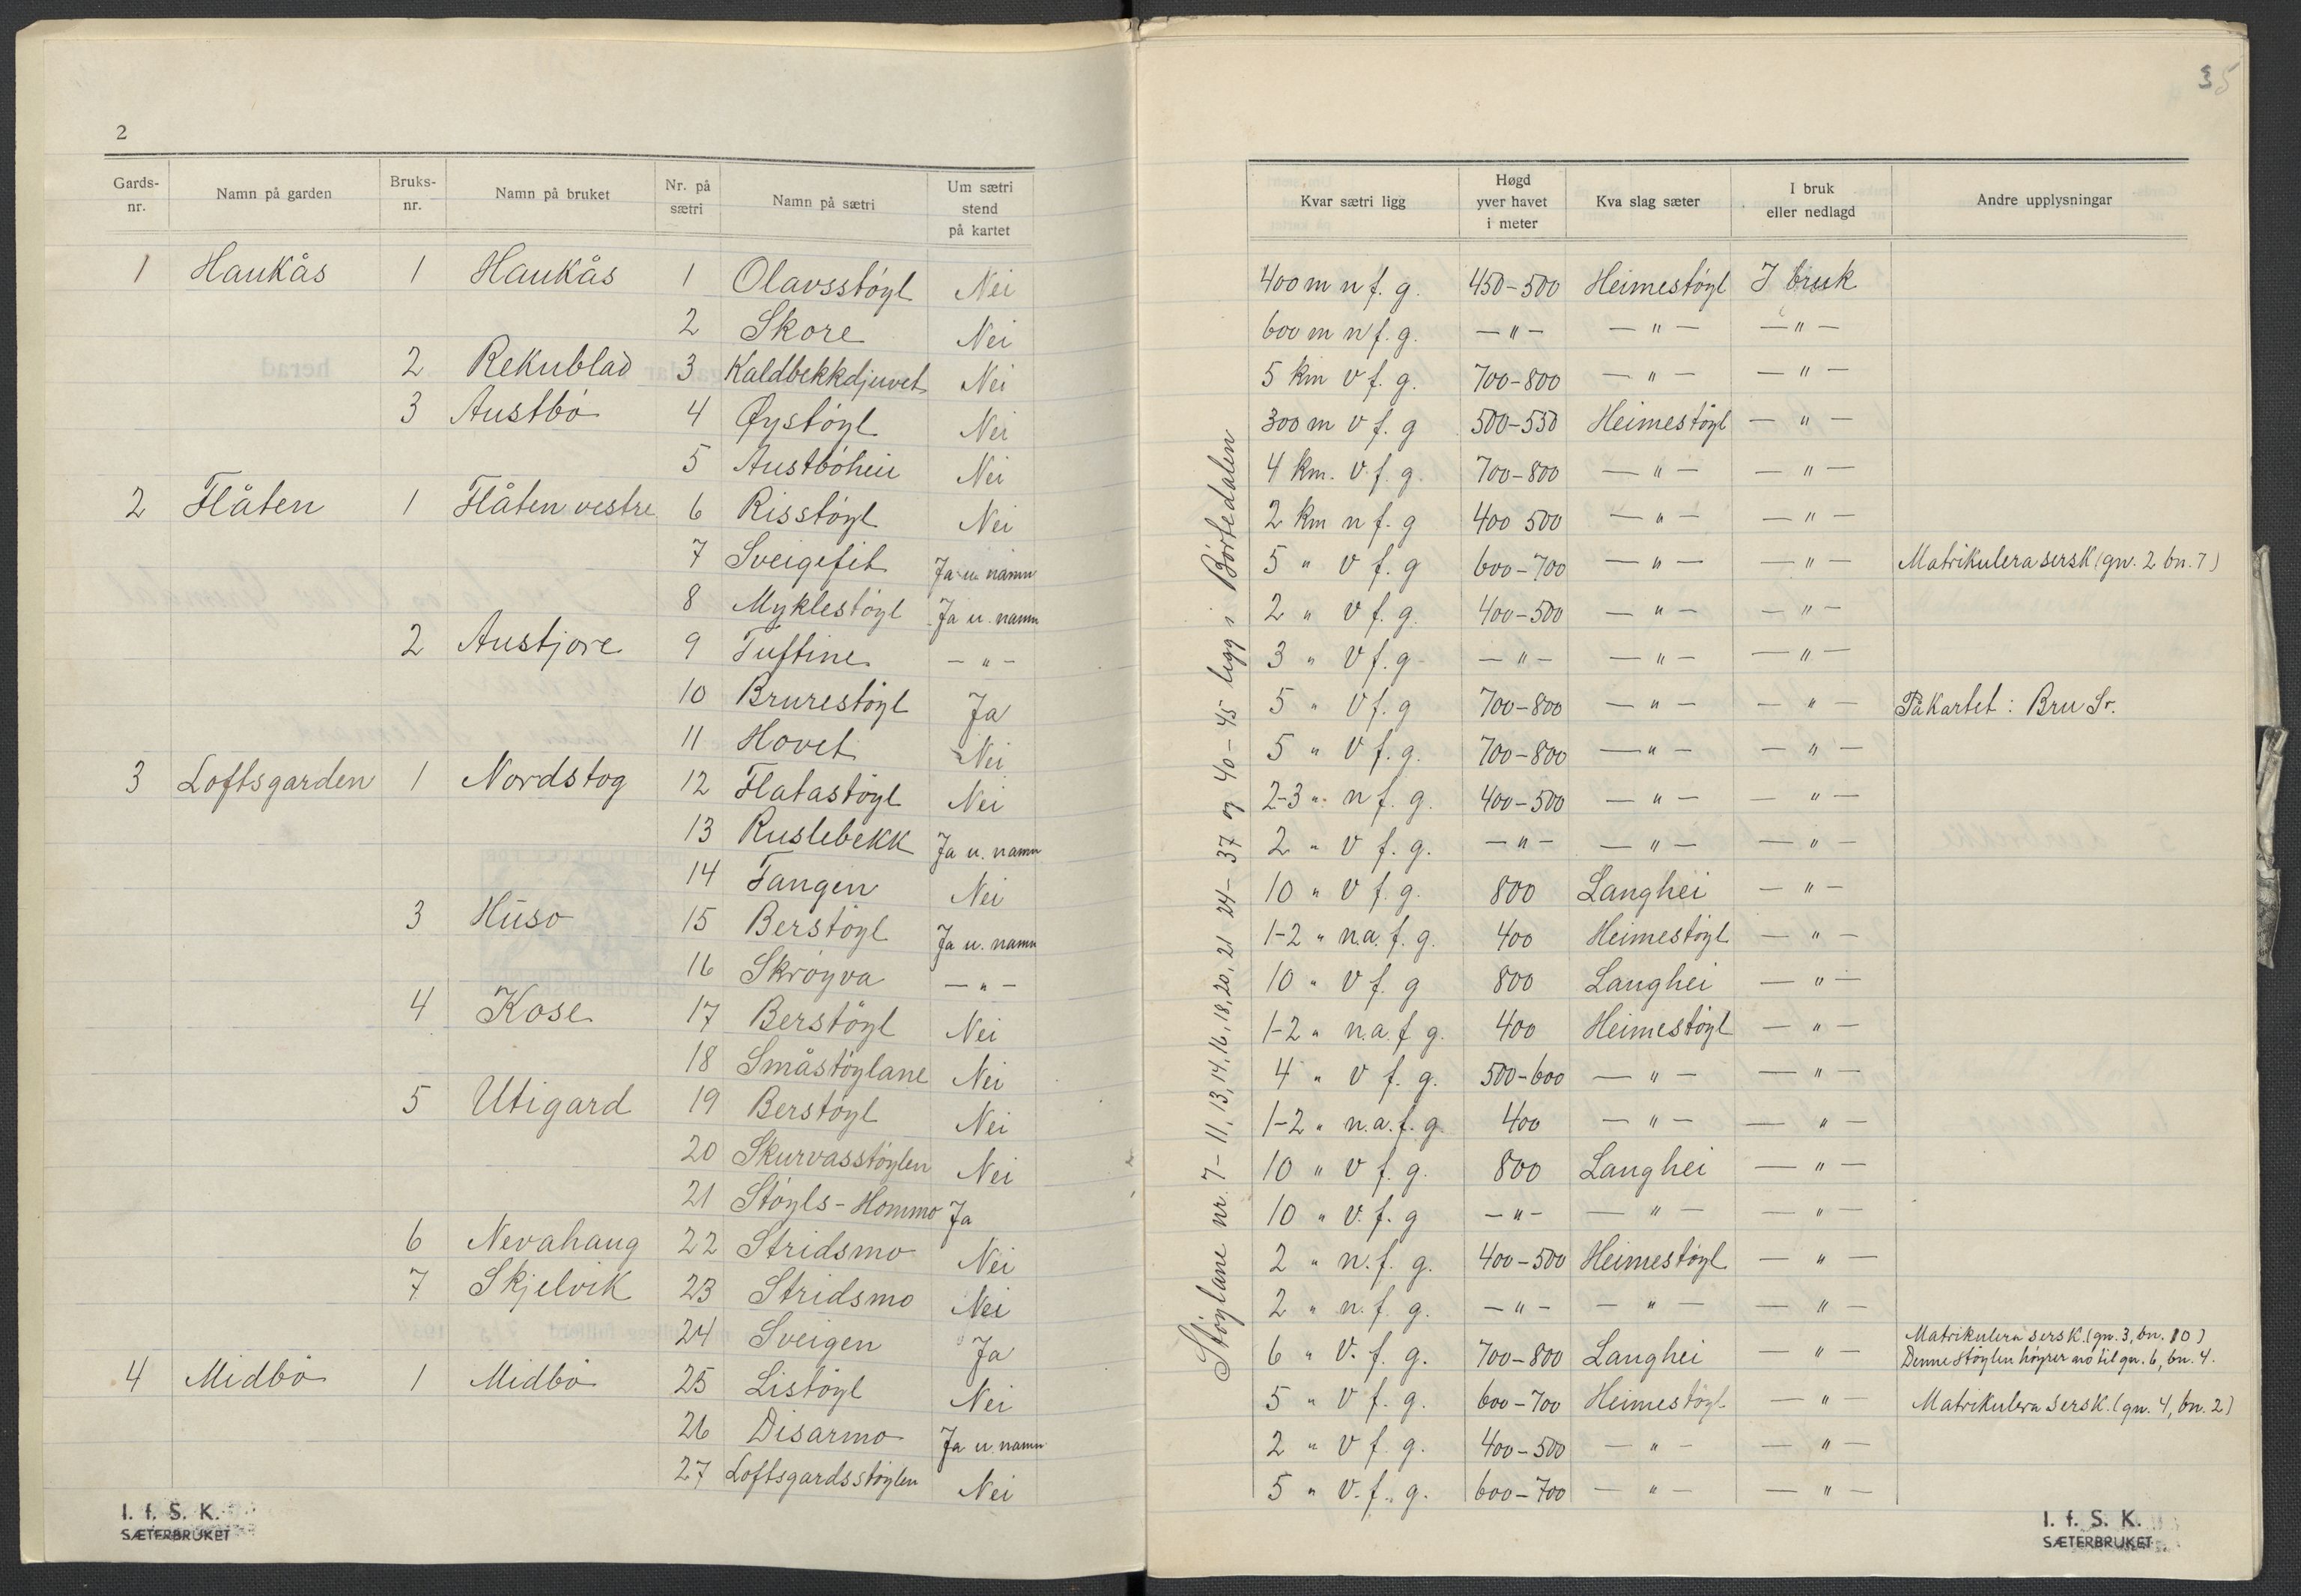 2
Gards-nr. Namn på garden Bruks-nr. Namn på bruket Nr. på sætri Namn på sætri Um sætri stend på kartet
1 Haukås 1 Haukås 1 Olavsstøyl Nei
2 Skore Nei
2 Rekublad 3 Kaldbekkdjuvet Nei
3 Austbø 4 Øystøyl Nei
5 Austbøhei Nei
2 Flåten 1 Flåten vestre 6 Risstøyl Nei
7 Sveigefit Ja u. namn
8 Myklestøyl Ja u. namn
2 Austjore 9 Tuftine — " —
10 Brurestøyl Ja
11 Hovet Nei
3 Loftsgarden 1 Nordstog 12 Flatastøyl Nei
13 Ruslebekk Ja u. namn
14 Tangen Nei
3 Huso 15 Berstøyl Ja u. namn
16 Skrøyva — " —
4 Kose 17 Berstøyl Nei
18 Småstøylane Nei
5 Utigard 19 Berstøyl Nei
20 Skurvasstøylen Nei
21 Støyls-Hommo Ja
6 Nevahaug 22 Stridsmo Nei
7 Skjelvik 23 Stridsmo Nei
24 Sveigen Ja
4 Midbø 1 Midbø 25 Listøyl Nei
26 Disarmo Ja u. namn
27 Loftsgardsstøylen Nei
I. f. S. K.
SÆTERBRUKET
35
Kvar sætri ligg Høgd yver havet i meter Kva slag sæter I bruk eller nedlagd Andre upplysningar
Støylane nr. 7-11, 13, 14, 16, 18, 20, 21 24-37 og 40-45 ligg i Børtedalen
400 m n f. g. 450-500 Heimestøyl I bruk
600 m n f. g. — " — — " — — " —
5 km v f. g. 700-800 — " — — " —
300 m v f. g 500-550 Heimestøyl — " —
4 km. v. f. g. 700-800 — " — — " —
2 km n f. g 400 500 — " — — " —
5 " v f. g 600-700 — " — — " — Matrikulera sersk (gn. 2 bn. 7)
2 " v f. g. 400-500 — " — — " —
3 " v f. g — " — — " — — " —
5 " v f. g 700-800 — " — — " — På kartet: Bru Sr.
5 " v f. g. 700-800 — " — — " —
2-3 " n f. g. 400-500 — " — — " —
2 " v f. g. — " — — " — — " —
10 " v f. g. 800 Langhei — " —
1-2 " n.a. f. g. 400 Heimestøyl — " —
10 " v f. g 800 Langhei — " —
1-2 " n.a f g. 400 Heimestøyl — " —
4 " v f. g. 500-600 — " — — " —
1-2 " n.a. f. g. 400 — " — — " —
10 " v f. g. 800 Langhei — " —
10 " v. f. g — " — — " — — " —
2 " n. f. g. 400-500 Heimestøyl — " —
2 " n. f. g. — " — — " — — " —
6 " v. f. g. 700-800 Langhei — " — Matrikulera sersk. (gn. 3, bn. 10)
Denne støylen høyrer no til gn. 6, bn. 4.
5 " v f. g. 600-700 Heimestøyl — " — Matrikulera sersk. (gn. 4, bn. 2)
2 " v f. g. 400-500 — " — — " —
5 " v. f. g. 600-700 — " — — " —
I. f. S. K.
SÆTERBRUKET